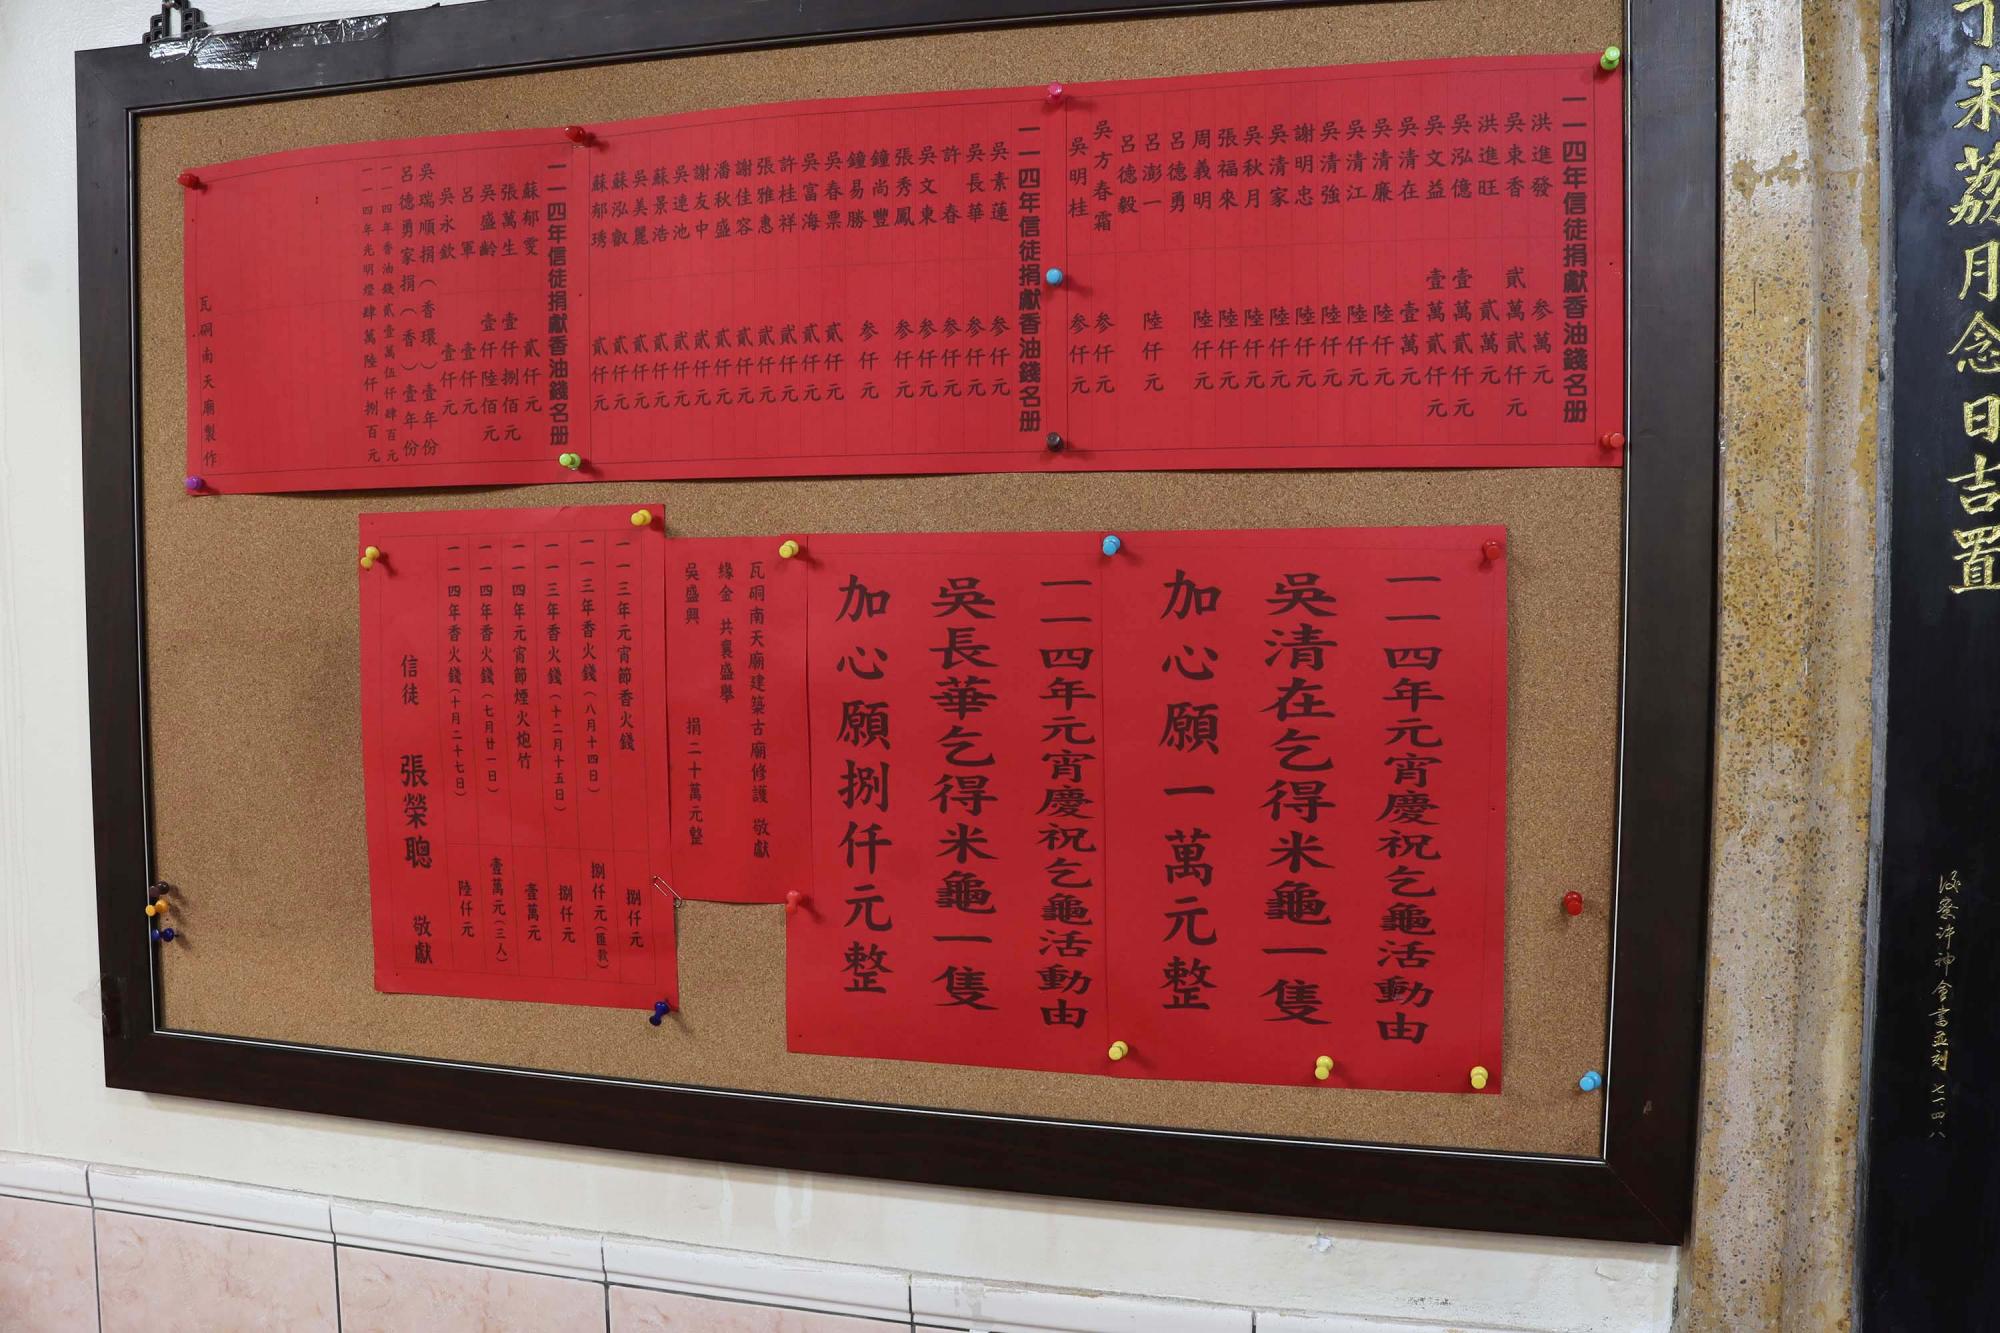 一一四年信徒捐獻香油錢名冊
洪進發 参萬元
吳東香 貳萬貳仟元
洪進旺 貳萬元
吳泓億 壹萬貳仟元
吳文益 壹萬貳仟元
吳清在 壹萬元
吳清廉 陸仟元
吳清江 陸仟元
吳清強 陸仟元
謝明忠 陸仟元
吳清家 陸仟元
吳秋月 陸仟元
張福來 陸仟元
周義明 陸仟元
呂德勇
呂澎一 陸仟元
呂德毅
吳方春霜 参仟元
吳明桂 参仟元
一一四年信徒捐獻香油錢名冊
吳素蓮 参仟元
吳長華 参仟元
許春 参仟元
吳文東 参仟元
張秀鳳 参仟元
鐘尚豐 参仟元
鐘易勝
吳春票 貳仟元
吳富海 貳仟元
許桂祥 貳仟元
張雅惠 貳仟元
謝佳容 貳仟元
潘秋盛 貳仟元
謝友中 貳仟元
吳連池 貳仟元
蘇景浩 貳仟元
吳美麗 貳仟元
蘇泓叡 貳仟元
蘇郁琇 貳仟元
一一四年信徒捐獻香油錢名冊
蘇郁雯 貳仟元
張萬生 壹仟捌佰元
吳盛齡 壹仟陸佰元
呂軍 壹仟元
吳永欽 壹仟元
吳瑞順捐(香環)壹年份
呂德勇家捐(香)壹年份
一一四年香油錢貳壹萬伍仟肆百元
一一四年光明燈肆萬陸仟捌百元
瓦硐南天廟製作
一一四年元宵慶祝乞龜活動由
吳清在乞得米龜一隻
加心願一萬元整
一一四年元宵慶祝乞龜活動由
吳長華乞得米龜一隻
加心願捌仟元整
瓦硐南天廟建築古廟修護 敬獻
緣金 共襄盛舉
吳盛興 捐二十萬元整
一一三年元宵節香火錢 捌仟元
一一三年香火錢(八月十四日) 捌仟元(匯款)
一一三年香火錢(十二月十五日) 捌仟元
一一四年元宵節煙火炮竹 壹萬元
一一四年香火錢(七月廿一日) 壹萬元(三人)
一一四年香火錢(十月二十七日) 陸仟元
信徒 張榮聰 敬獻
未荔月念日吉置
許神會書並刻 七一.四.八